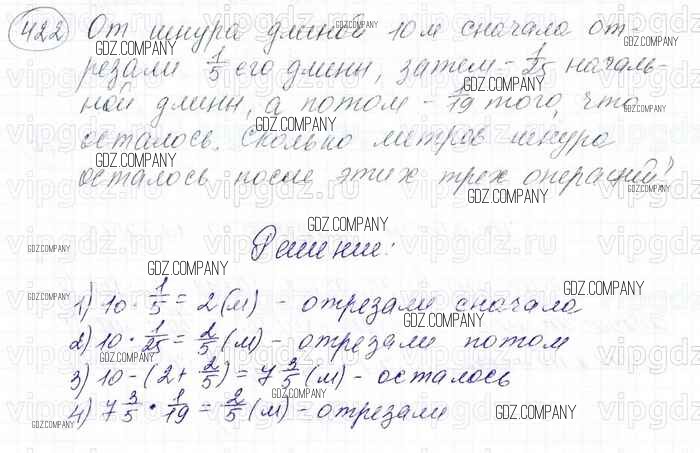 422 От шнура длиной 10 м сначала от-
резали 1/5 его длины, затем - 1/25 началь-
ной длины, а потом - 1/19 того, что
осталось. Сколько метров шнура
осталось после этих трех операций?
Решение:
1) 10 · 1/5 = 2 (м) - отрезали сначала
2) 10 · 1/25 = 2/5 (м) - отрезали потом
3) 10 - (2 + 2/5) = 7 3/5 (м) - осталось
4) 7 3/5 · 1/19 = 2/5 (м) - отрезали
GDZ.COMPANY
vipgdz.ru